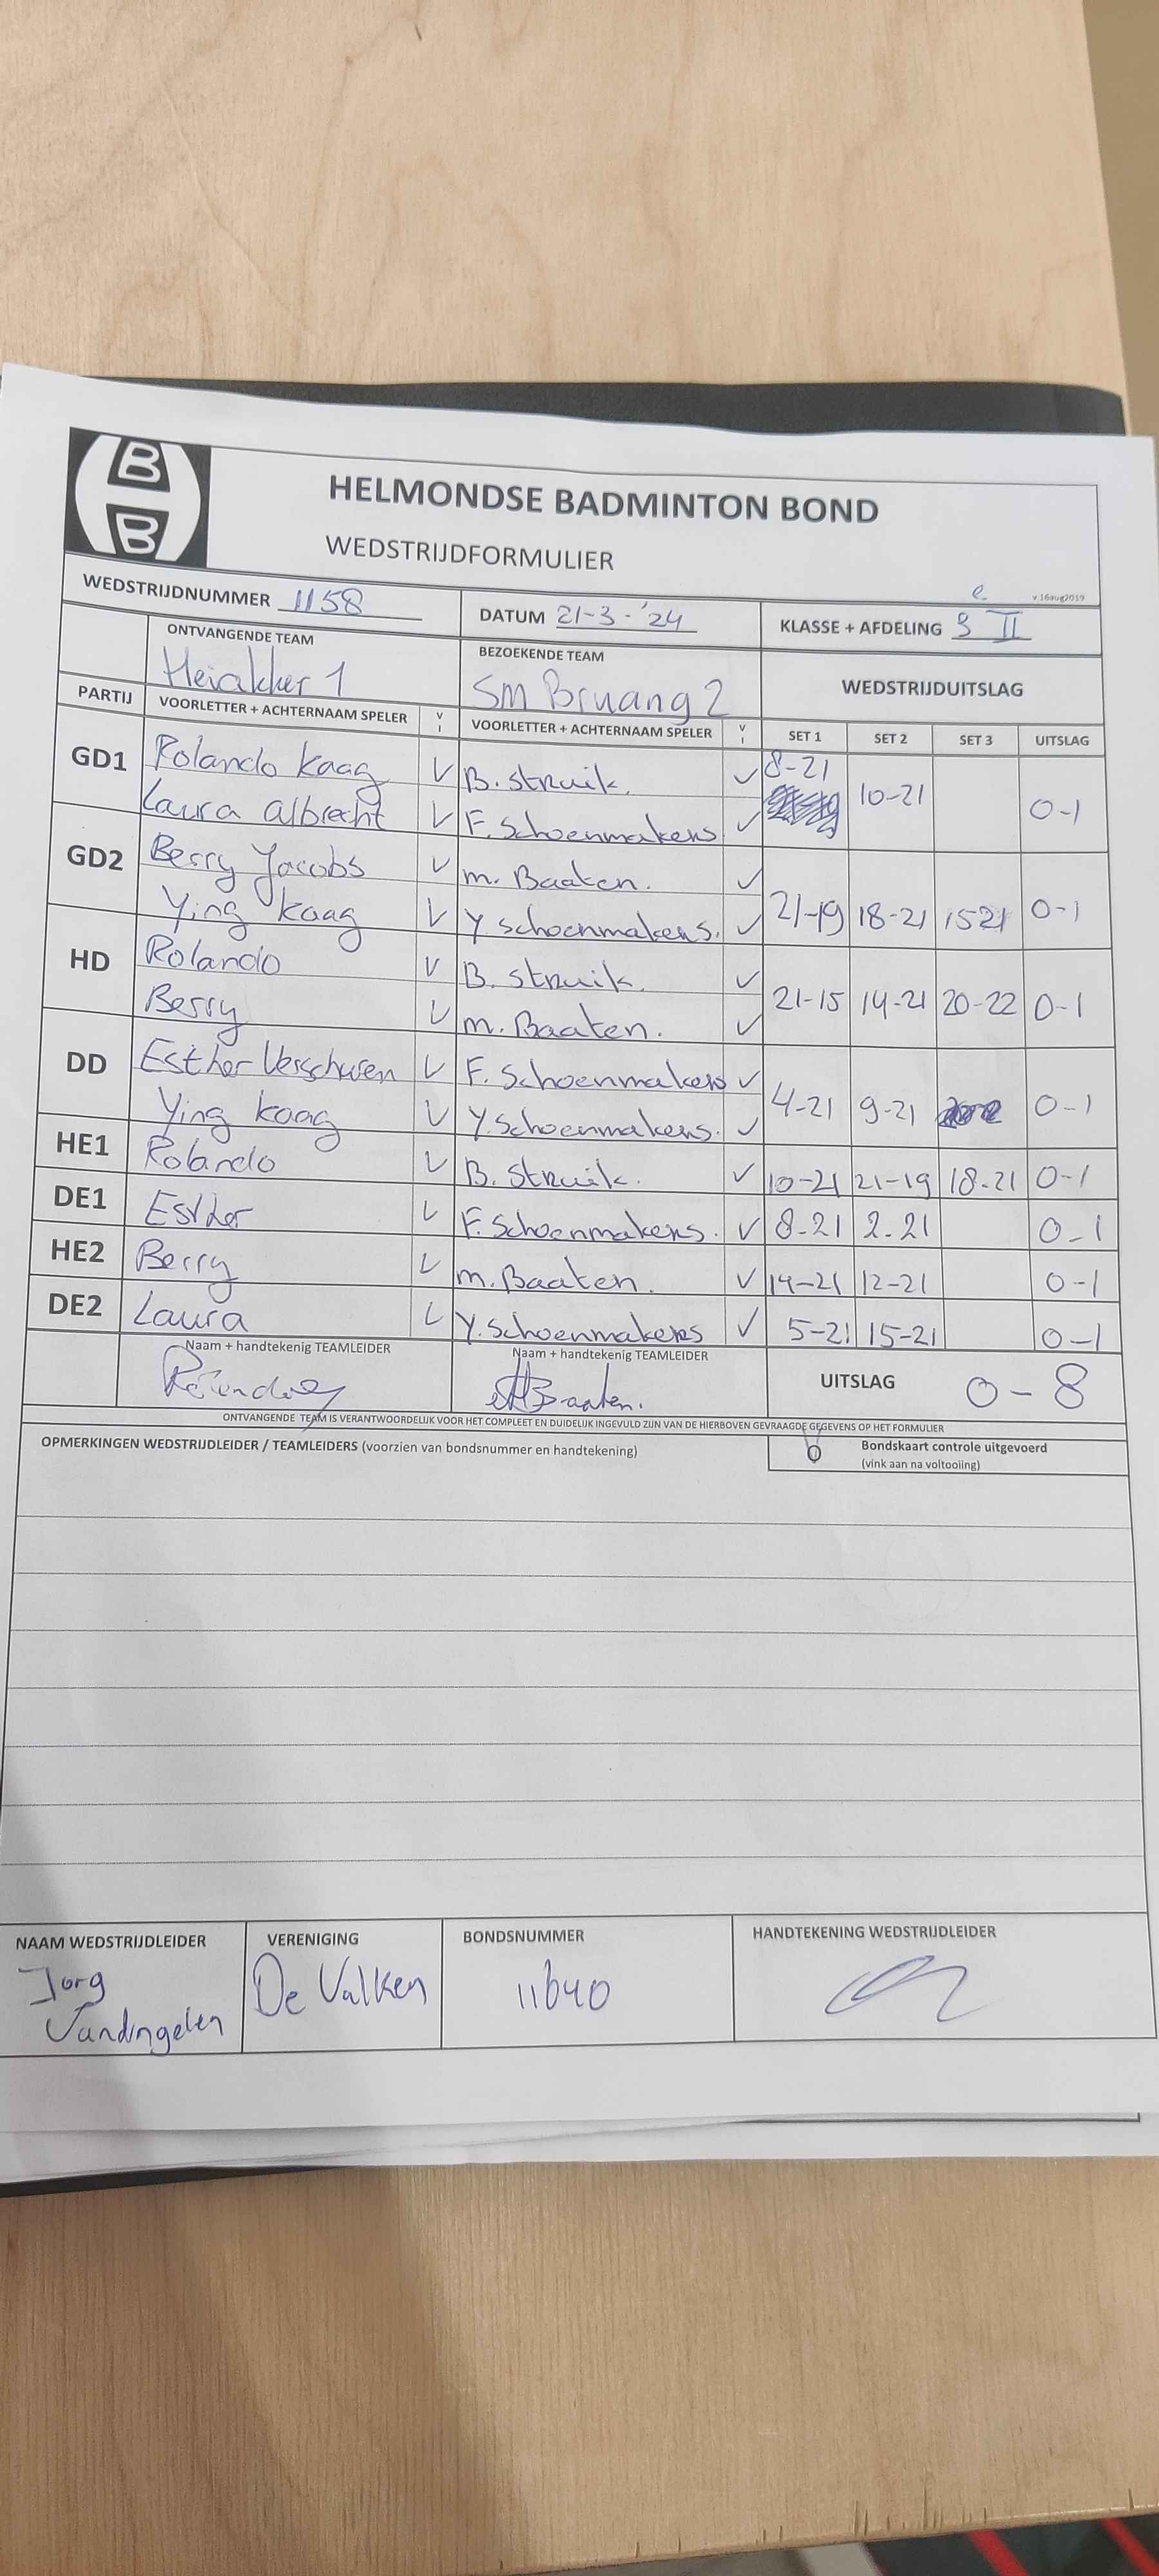 B
B
HELMONDSE BADMINTON BOND
WEDSTRIJDFORMULIER
v.16aug2019
WEDSTRIJDNUMMER 1158 DATUM 21-3-'24 KLASSE + AFDELING 3e II
ONTVANGENDE TEAM BEZOEKENDE TEAM WEDSTRIJDUITSLAG
Heiakker 1 SM Bruang 2
PARTIJ VOORLETTER + ACHTERNAAM SPELER V I VOORLETTER + ACHTERNAAM SPELER V I SET 1 SET 2 SET 3 UITSLAG
GD1 Rolando Kaag V B. Struik. ✓ 8-21 10-21 0-1
Laura Albrecht V F. Schoenmakers ✓
GD2 Berry Jacobs V m. Baaten. ✓ 21-19 18-21 15-21 0-1
Ying Kaag V Y Schoenmakers. ✓
HD Rolando V B. Struik. ✓ 21-15 14-21 20-22 0-1
Berry V m. Baaten. ✓
DD Esther Verschuren V F. Schoenmakers ✓ 4-21 9-21 0-1
Ying Kaag V Y. Schoenmakers. ✓
HE1 Rolando V B. Struik. ✓ 10-21 21-19 18-21 0-1
DE1 Esther V F. Schoenmakers. ✓ 8-21 2-21 0-1
HE2 Berry V m. Baaten. ✓ 14-21 12-21 0-1
DE2 Laura V Y. Schoenmakers ✓ 5-21 15-21 0-1
Naam + handtekenig TEAMLEIDER Naam + handtekenig TEAMLEIDER UITSLAG 0-8
Baaten.
ONTVANGENDE TEAM IS VERANTWOORDELIJK VOOR HET COMPLEET EN DUIDELIJK INGEVULD ZIJN VAN DE HIERBOVEN GEVRAAGDE GEGEVENS OP HET FORMULIER
OPMERKINGEN WEDSTRIJDLEIDER / TEAMLEIDERS (voorzien van bondsnummer en handtekening) Bondskaart controle uitgevoerd
(vink aan na voltooiing)
NAAM WEDSTRIJDLEIDER VERENIGING BONDSNUMMER HANDTEKENING WEDSTRIJDLEIDER
Jorg De Valken 11640
Vandingelen